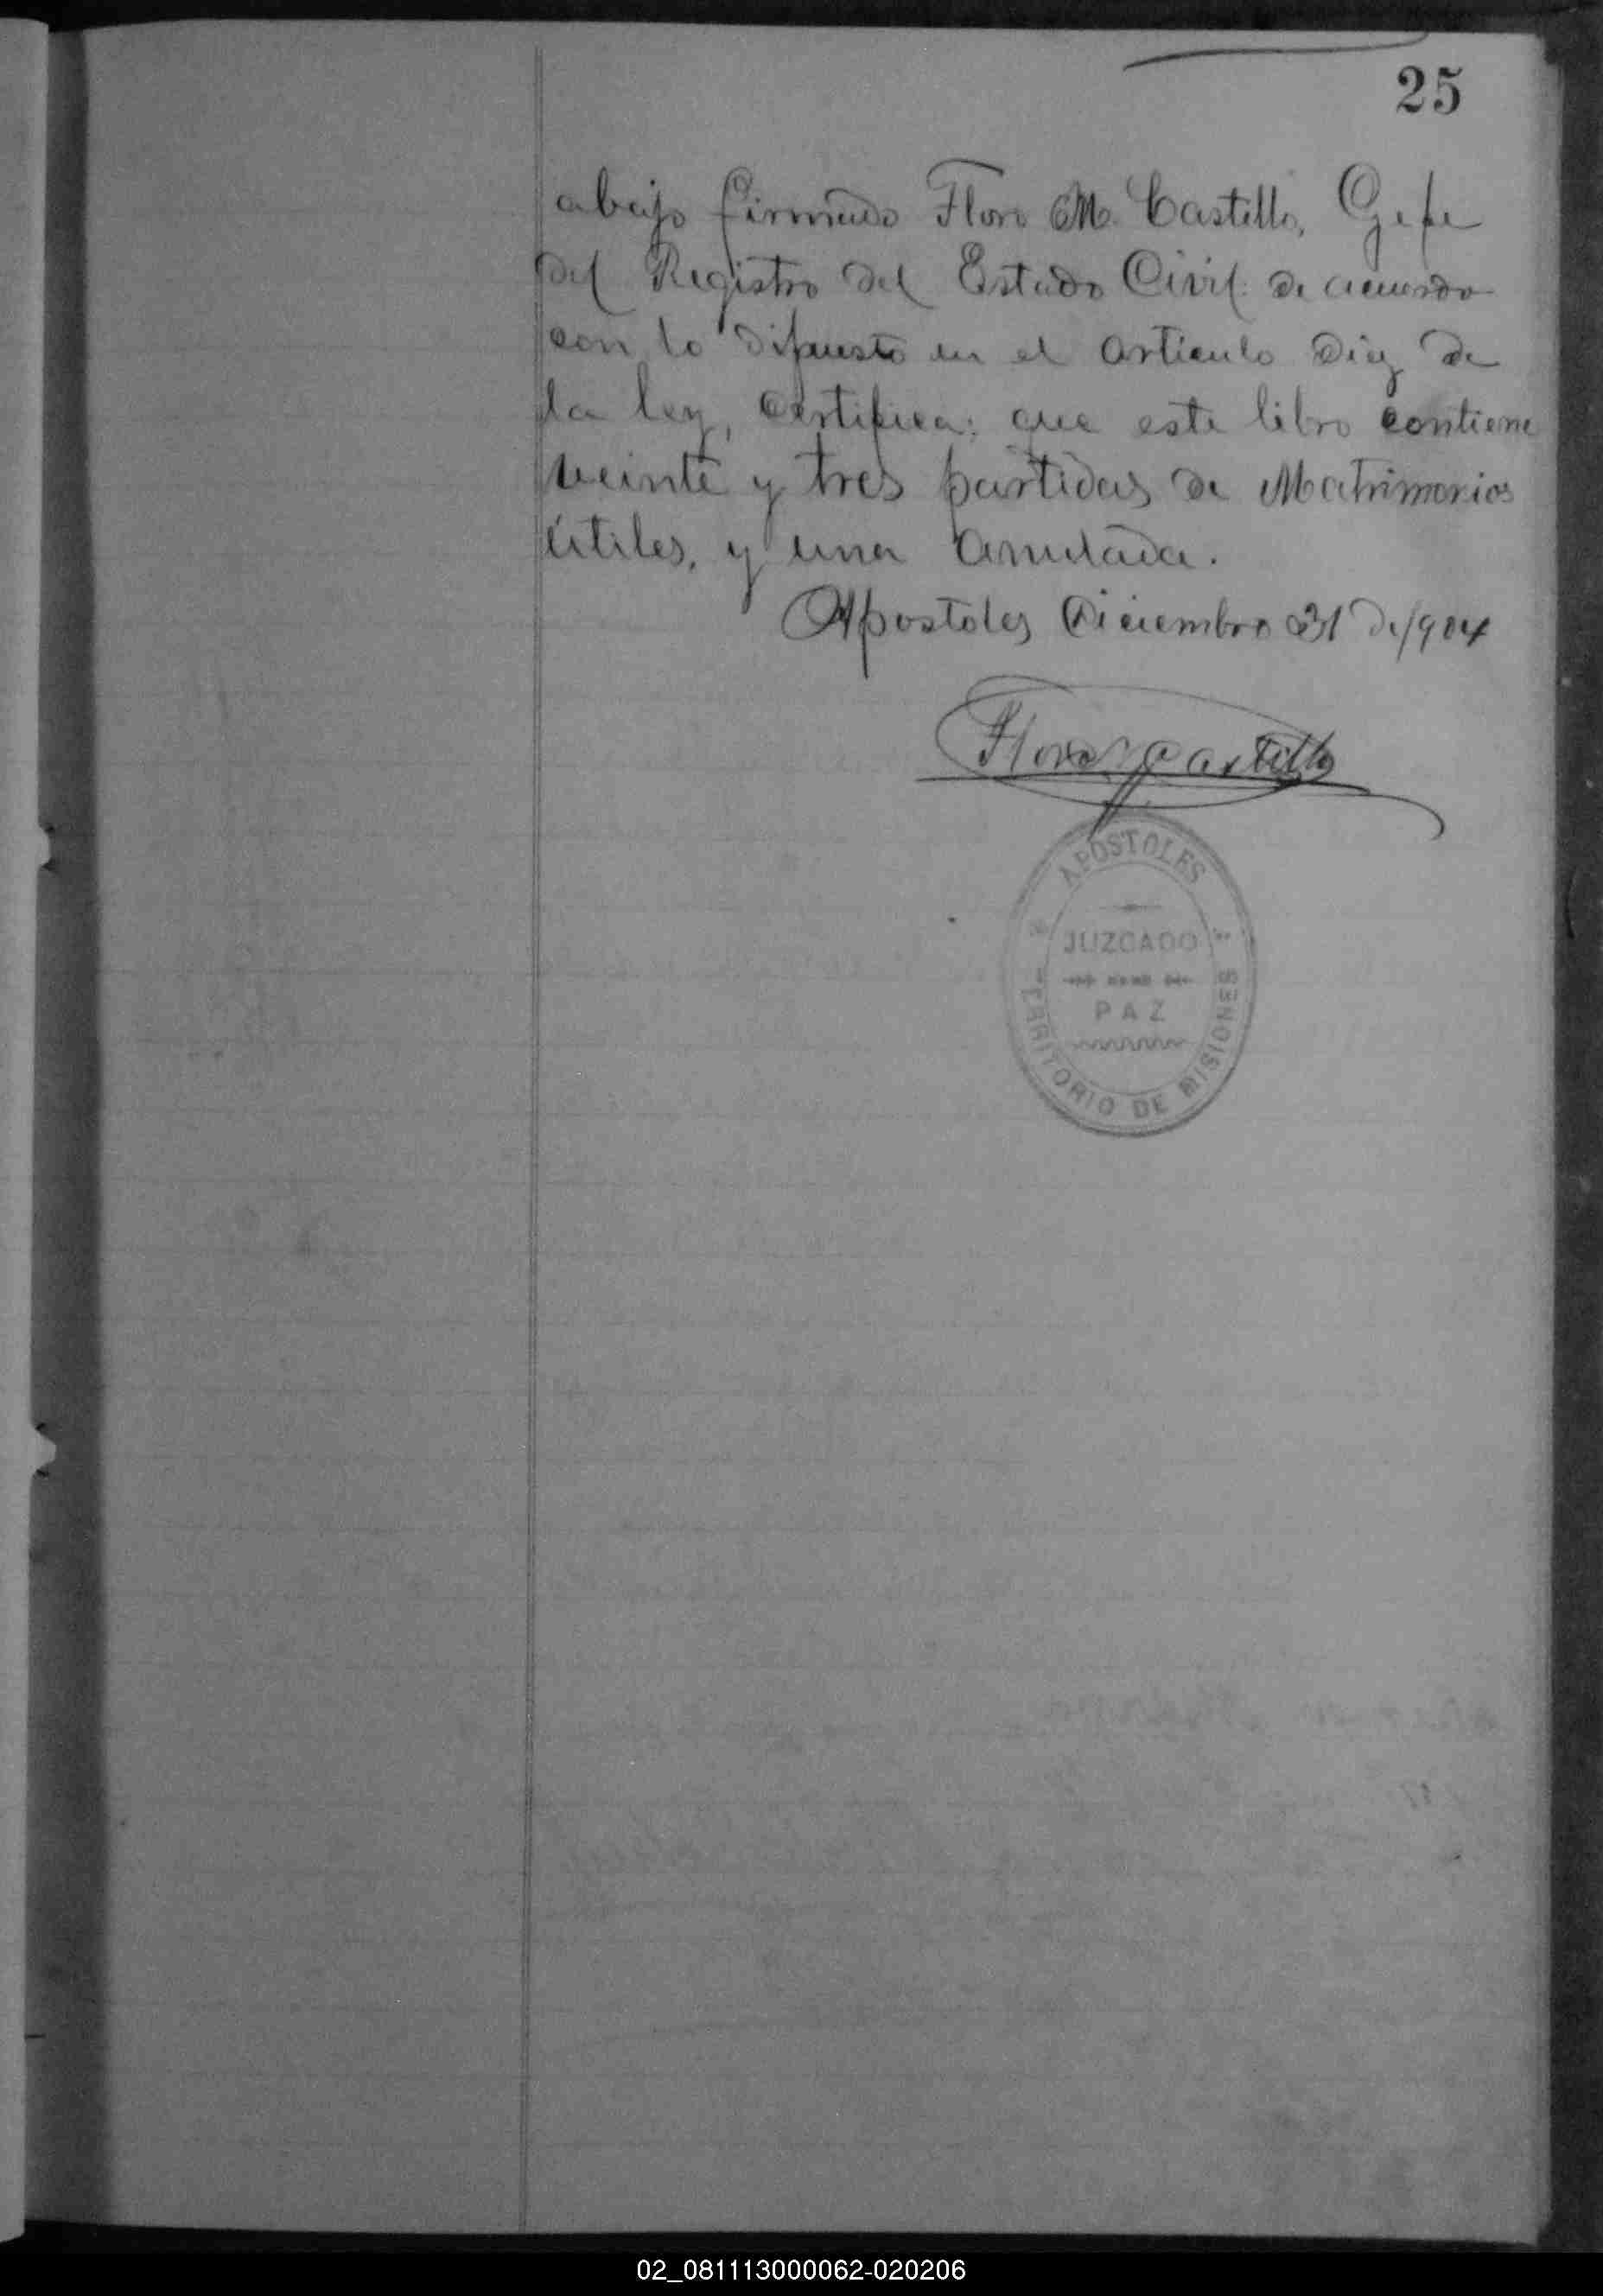 25
abajo firmado Floro M. Castillo, Gefe
del Registro del Estado Civil: de acuerdo
con lo dispuesto en el articulo diez de
la ley, certifica: que este libro contiene
veinte y tres partidas de Matrimonios
útiles, y una anulada.
Apostoles Diciembre 31 de/904
Floro M Castillo
APOSTOLES
JUZGADO
PAZ
TERRITORIO DE MISIONES
02_081113000062-020206